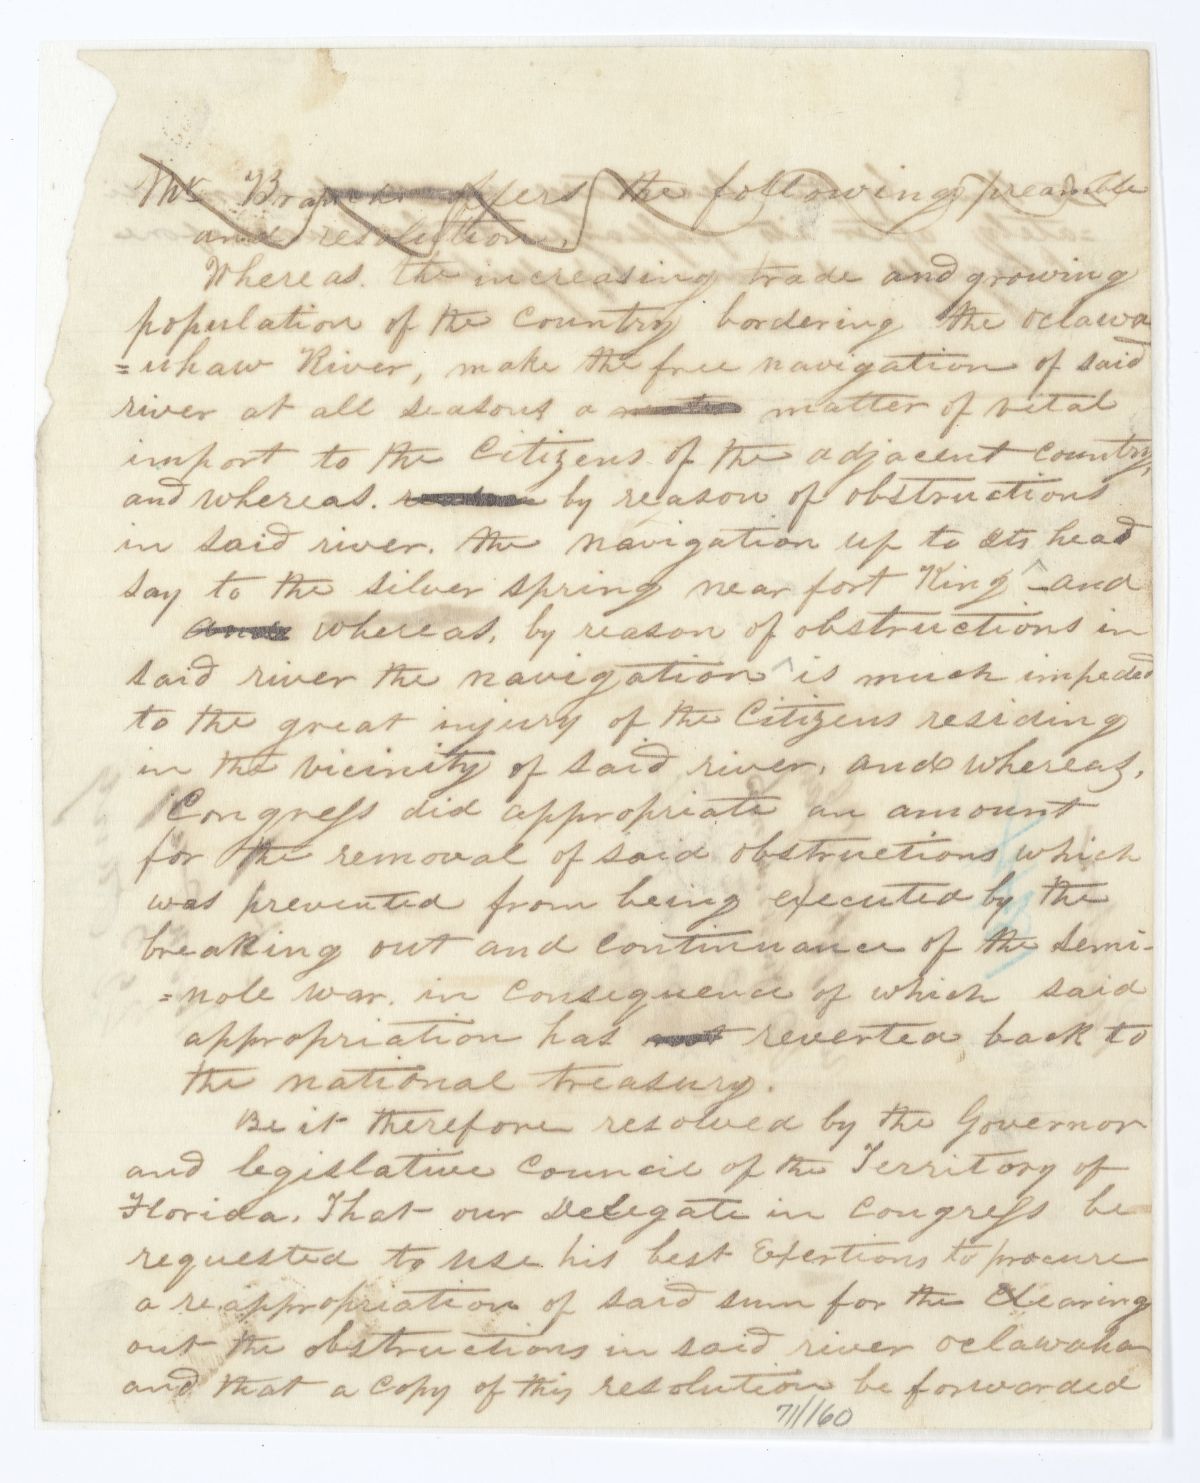 Mr Branch offers the following preamble
and resolution.
Whereas. the increasing trade and growing
population of the Country bordering the oclawa
=whaw River, make the free navigation of said
river at all seasons a matter of vital
import to the Citizens of the adjacent country,
and whereas. by reason of obstructions
in said river. the navigation up to its head
say to the silver spring near fort King ^ and
and whereas, by reason of obstructions in
said river the navigation ^ is much impeded
to the great injury of the Citizens residing
in the vicinity of said river. and whereas,
Congress did appropriate an amount
for the removal of said obstructions which
was prevented from being executed by the
breaking out and continuance of the Semi-
=nole war. in consequence of which said
appropriation has not reverted back to
the national treasury.
Be it therefore resolved by the Governor
and legislative Council of the Territory of
Florida. That our Delegate in Congress be
requested to use his best Exertions to procure
a reappropriation of said sum for the Clearing
out the obstructions in said river oclawaha
and that a copy of this resolution be forwarded
71/160